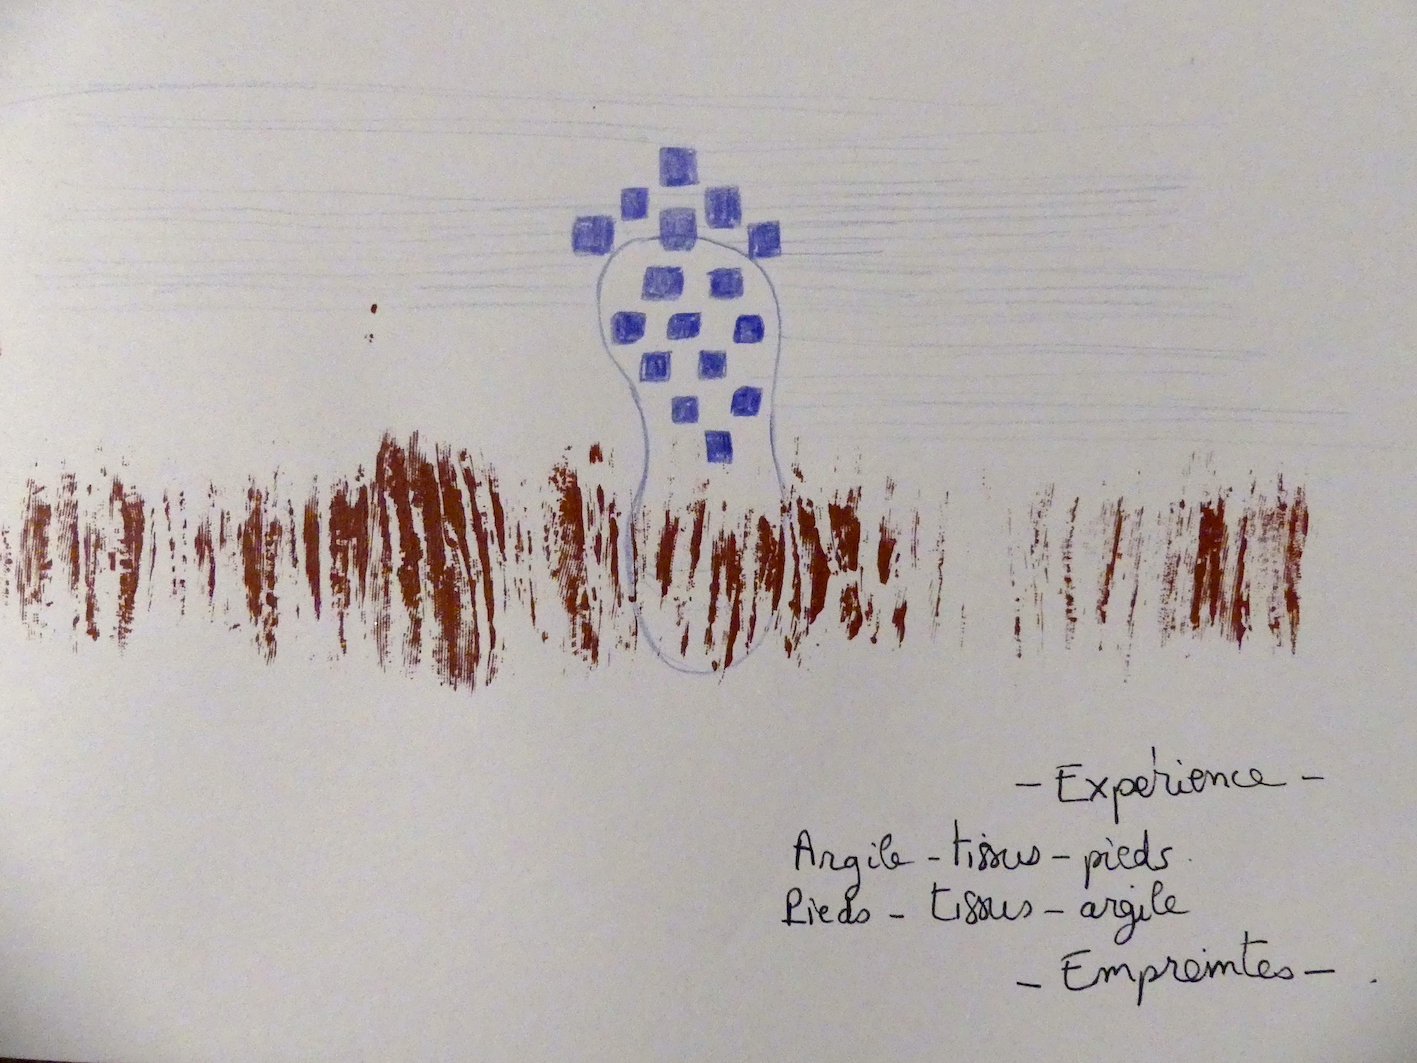 - Expérience -
Argile - tissus - pieds.
Pieds - tissus - argile
- Empreintes - .